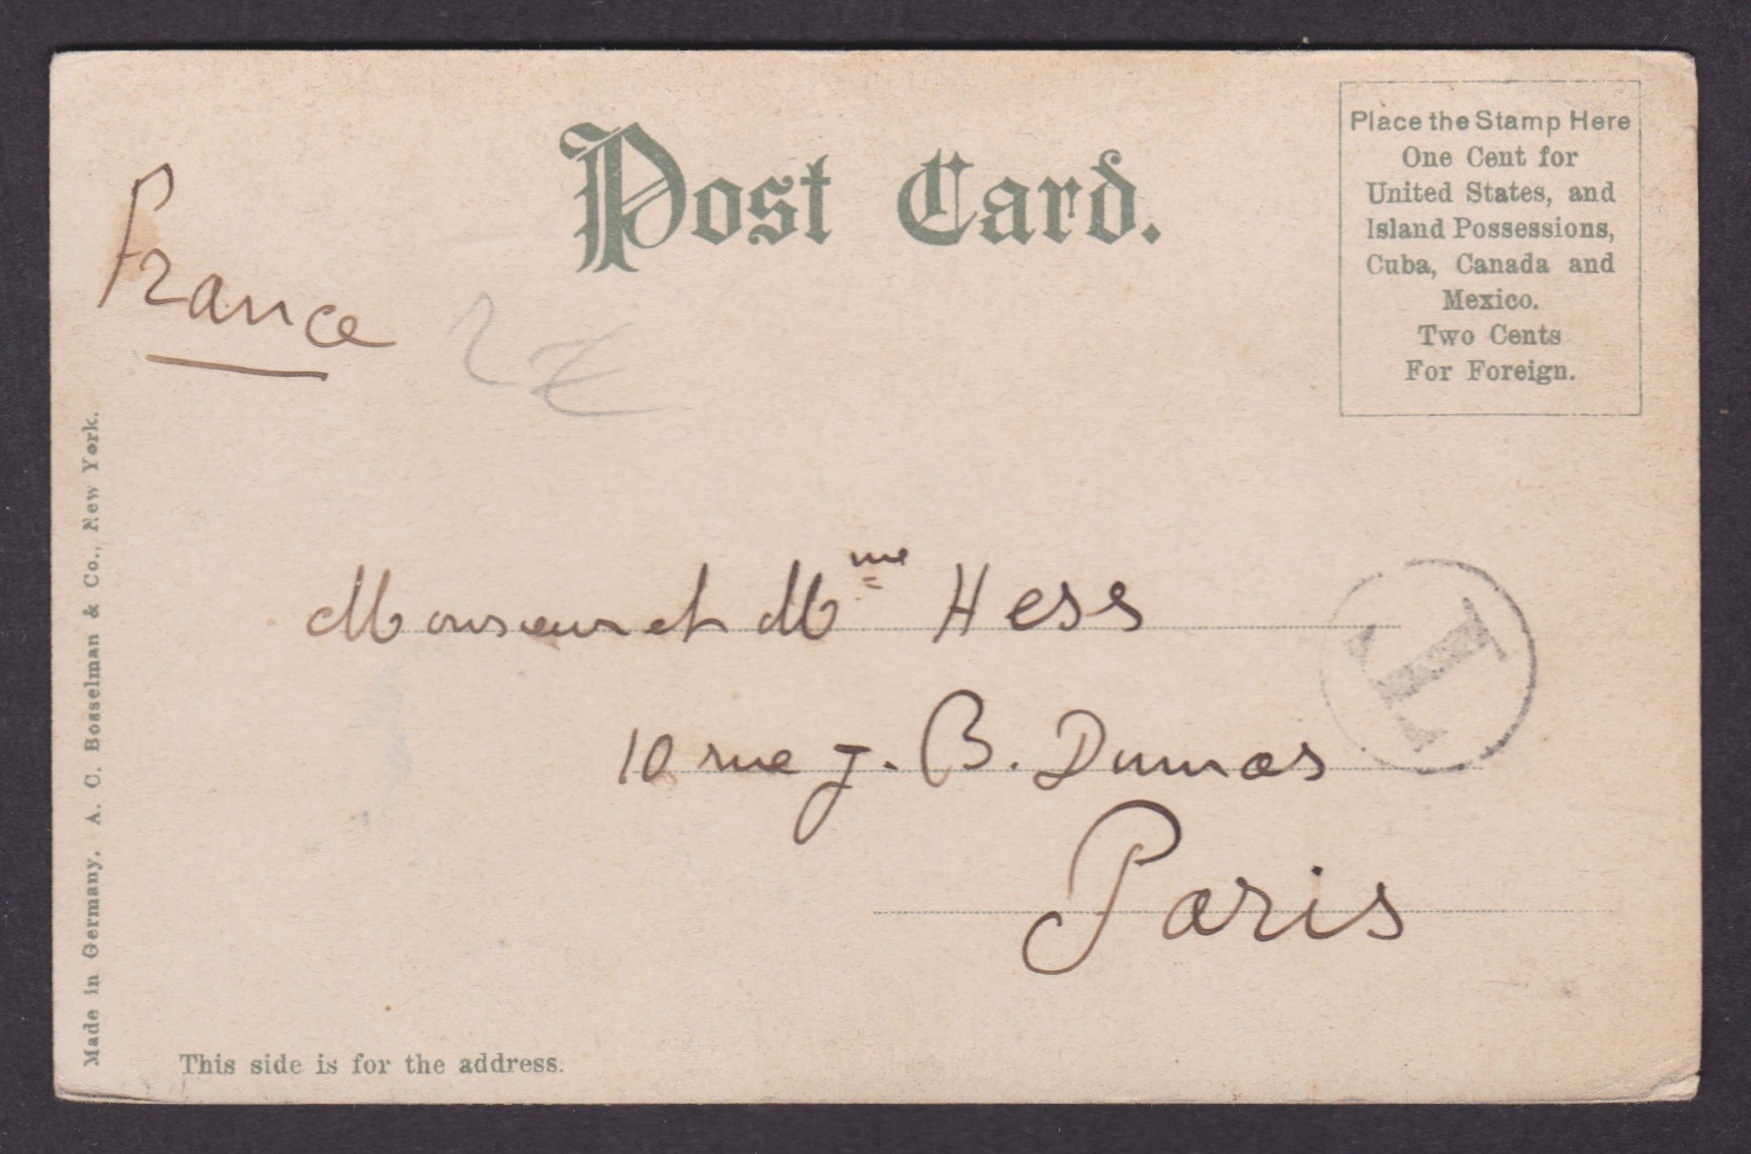 Post Card.
Place the Stamp Here
One Cent for
United States, and
Island Possessions,
Cuba, Canada and
Mexico.
Two Cents
For Foreign.
France
Monsieur et Mme Hess
10 rue J. B. Dumas
Paris
T
Made in Germany. A. C. Bosselman & Co., New York.
This side is for the address.